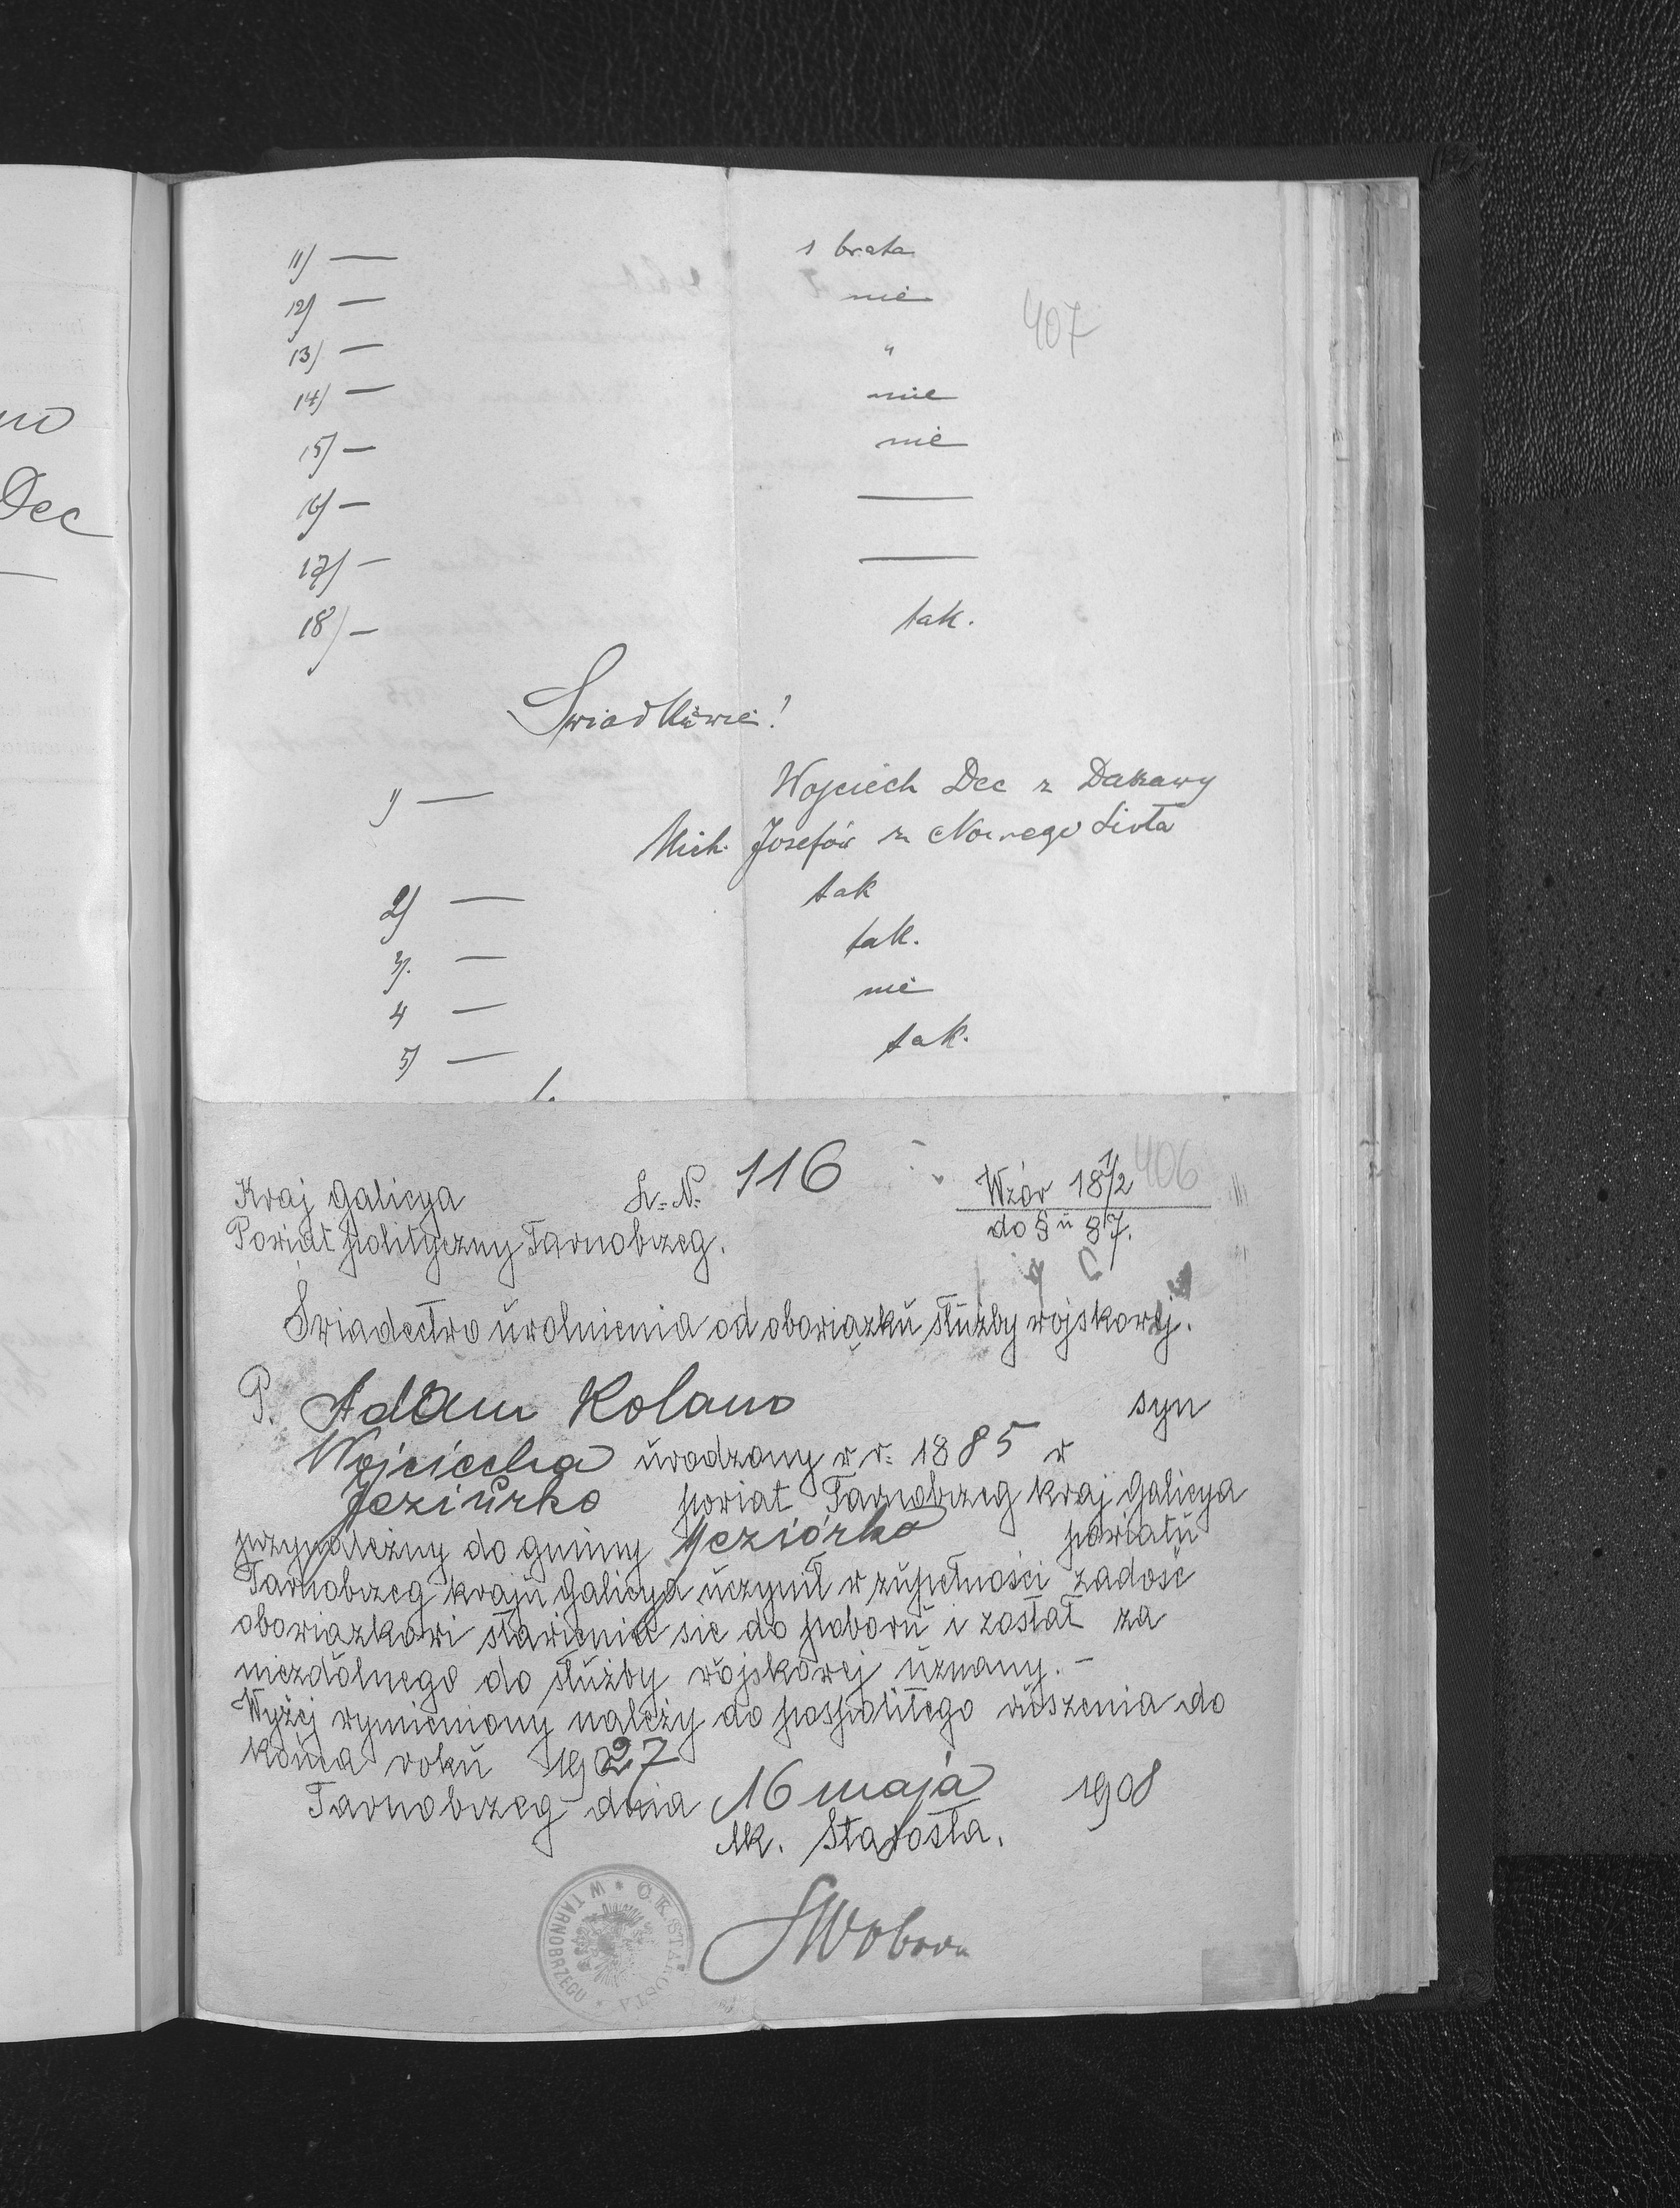 no
Dec
11) — 1 brata
12) — nie
407
13) — "
14) — nie
15) — nie
16) — —
17) — —
18) — tak.
Swiadkowie!
1) — Wojciech Dec z Dakawy
Mich. Josefów z Nowego
2) — tak
3). — tak.
4 — nie
5) — tak.
Kraj Galicya L. N. 116 Wzór 18 1/2 406
Powiat polityczny Tarnobrzeg. do § u 87.
Świadectwo uwolnienia od obowiązku służby wojskowej.
P. Adam Kolano syn
Wojciecha urodzony w r. 1885 w
Jeziurko powiat Tarnobrzeg kraj Galicya
przynależny do gminy Jeziórko powiatu
Tarnobrzeg kraju Galicya uczynił w zupełności zadość
obowiązkowi stawienia się do poboru i został za
niezdolnego do służby wojskowej uznany. —
Wyżej wymieniony należy do pospolitego ruszenia do
końca roku 1927
Tarnobrzeg dnia 16 maja 1908
ck. Starosta.
C. K. STAROSTA * W TARNOBRZEGU *